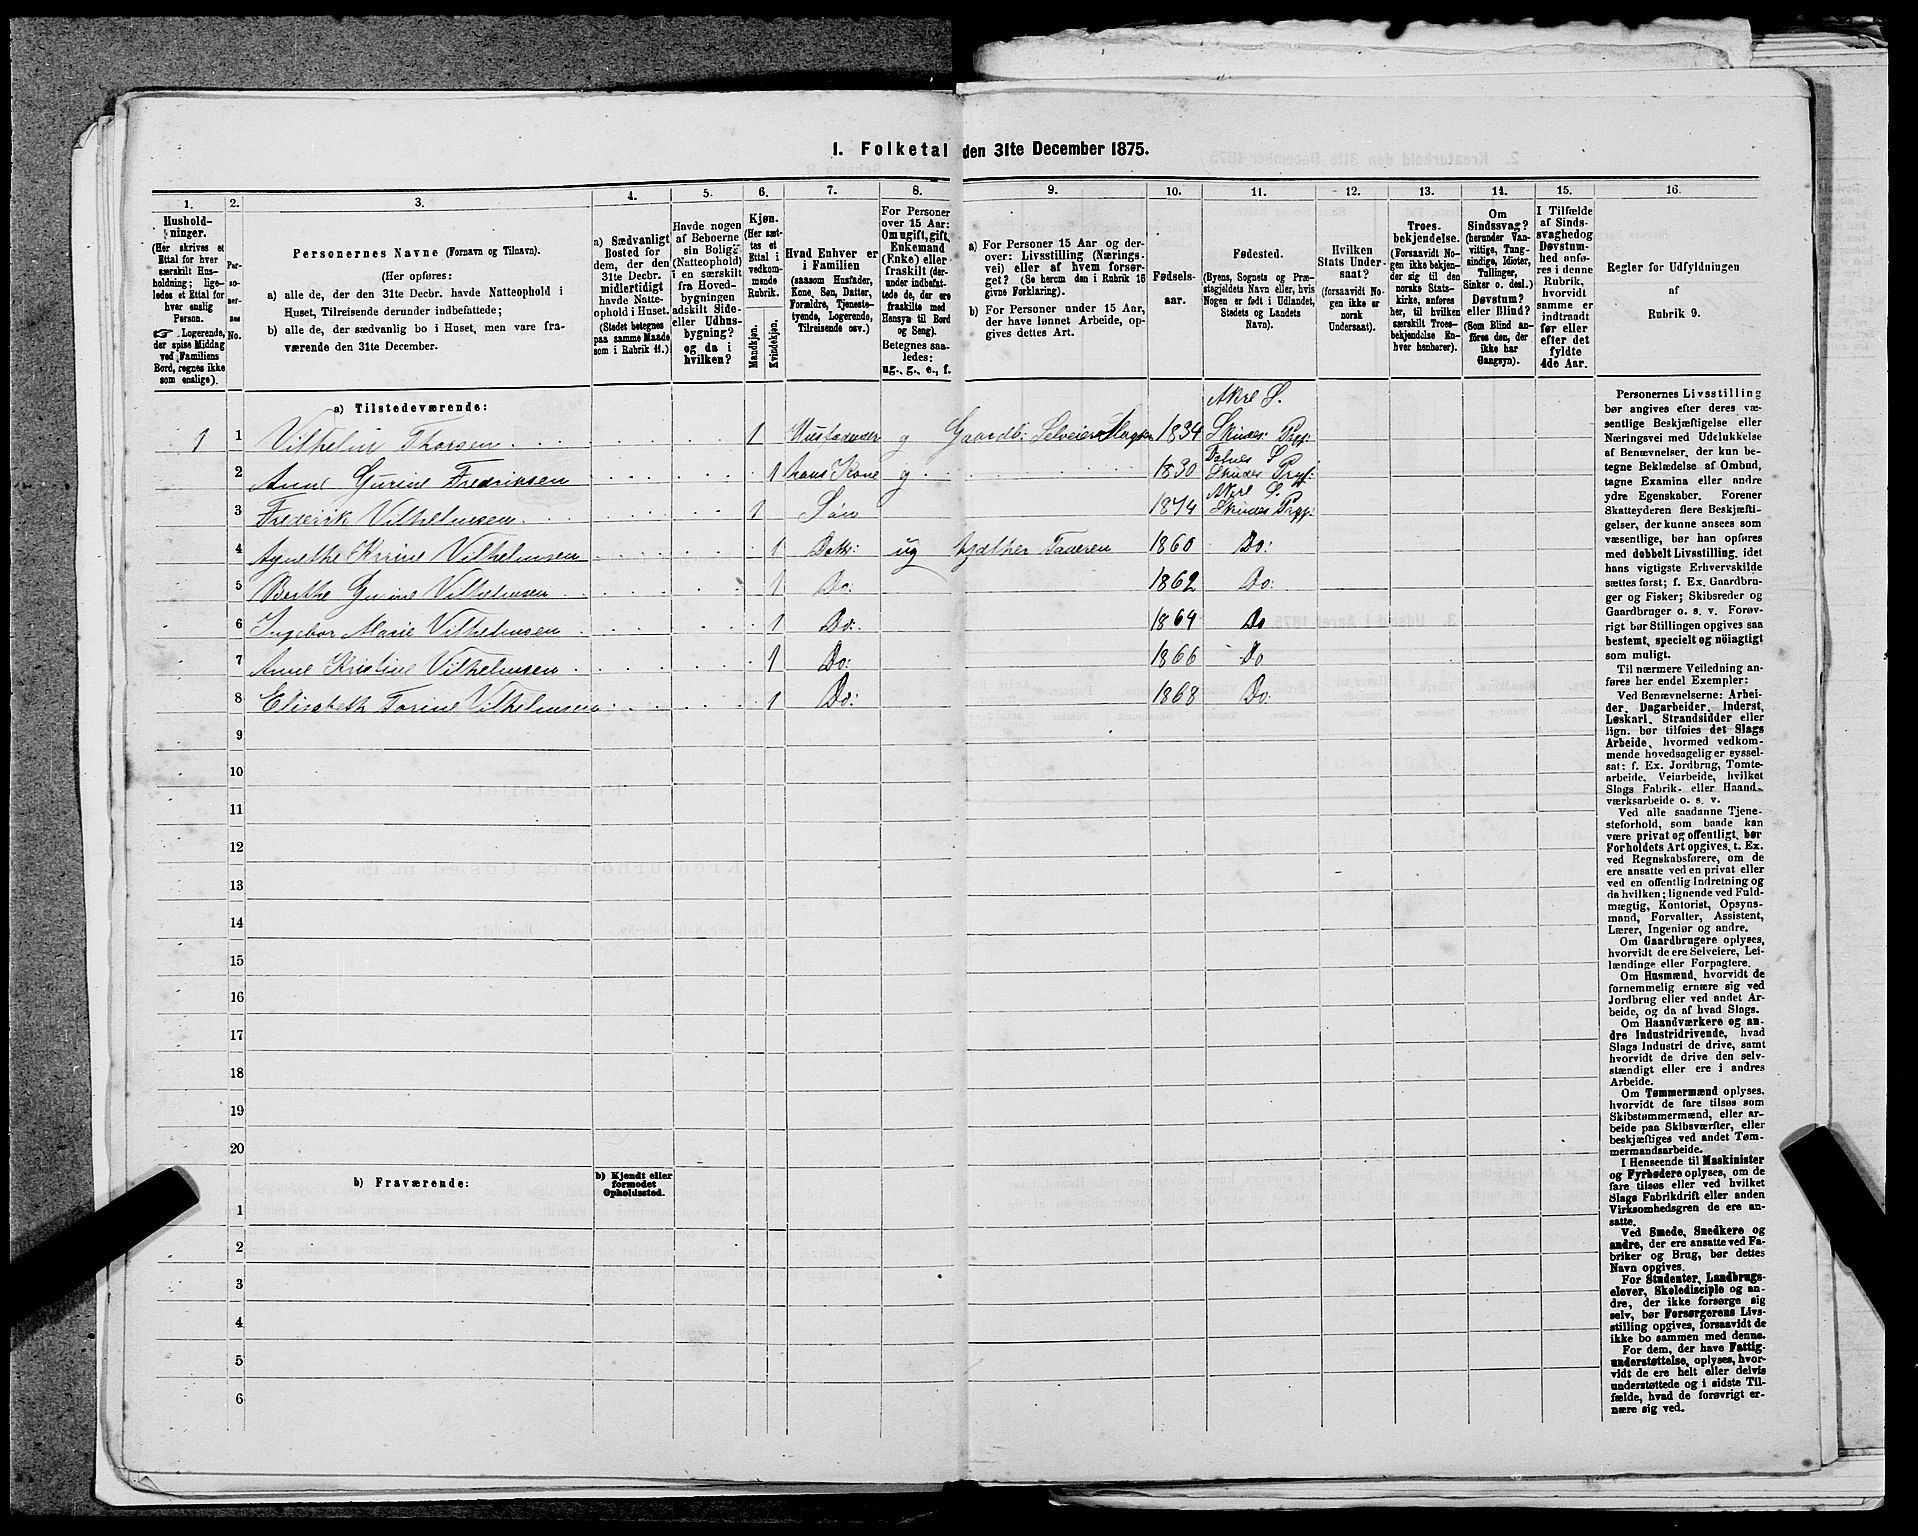 1. Folketal den 31te December 1875.
1.
2.
3.
4.
5.
6.
7.
8.
9.
10.
11.
12.
13.
14.
15.
16.
Hushold-
ninger.
(Her skrives et
Ettal for hver
særskilt Hus-
holdning; lige-
ledes et Ettal for
hver enslig
Person.
☞ Logerende,
der spise Middag
ved Familiens
Bord, regnes ikke
som enslige).
Per-
so-
ner-
nes
No.
Personernes Navne (Fornavn og Tilnavn).
(Her opføres:
a) alle de, der den 31te Decbr. havde Natteophold i
Huset, Tilreisende derunder indbefattede;
b) alle de, der sædvanlig bo i Huset, men vare fra-
værende den 31te December.
a) Sædvanligt
Bosted for
dem, der den
31te Decbr.
midlertidigt
havde Natte-
ophold i Huset.
(Stedet betegnes
paa samme Maade
som i Rubrik 11.)
Havde nogen
af Beboerne
sin Bolig
(Natteophold)
i en særskilt
fra Hoved-
bygningen
adskilt Side-
eller Udhus-
bygning?
og da i
hvilken?
Kjøn.
(Her sæt-
tes et
Ettal i
vedkom-
mende
Rubrik.
Mandkjøn.
Kvindekjøn.
Hvad Enhver er
i Familien
(saasom Husfader,
Kone, Søn, Datter,
Forældre, Tjeneste-
tyende, Logerende,
Tilreisende osv.)
For Personer
over 15 Aar:
Om ugift, gift,
Enkemand
(Enke) eller
fraskilt (der-
under indbefat-
tede de, der ere
fraskilte med
Hensyn til Bord
og Seng).
Betegnes saa-
ledes:
ug., g., e., f.
a) For Personer 15 Aar og der-
over: Livsstilling (Nærings-
vei) eller af hvem forsør-
get? (Se herom den i Rubrik 16
givne Forklaring).
b) For Personer under 15 Aar,
der have lønnet Arbeide, op-
gives dettes Art.
Fødsels-
aar.
Fødested.
(Byens, Sognets og Præ-
stegjeldets Navn eller, hvis
Nogen er født i Udlandet,
Stedets og Landets
Navn).
Hvilken
Stats Under-
saat?
(forsaavidt No-
gen ikke er
norsk
Undersaat).
Troes-
bekjendelse.
(Forsaavidt No-
gen ikke bekjen-
der sig til den
norske Stats-
kirke, anføres
her, til hvilken
særskilt Troes-
bekjendelse En-
hver henhører).
Om
Sindssvag?
(herunder Van-
vittige, Tung-
sindige, Idioter,
Tullinger,
Sinker o. desl.)
Døvstum?
eller Blind?
(Som Blind an-
føres den, der
ikke har
Gangsyn).
I Tilfælde
af Sinds-
svaghed og
Døvstum-
hed anfø-
res i denne
Rubrik,
hvorvidt
samme er
indtraadt
før eller
efter det
fyldte
4de Aar.
Regler for Udfyldningen
af
Rubrik 9.
a) Tilstedeværende:
Akre S.
1 1 Vilhelm Thorsen 1 Husfader g Gaardb: Selveier 1834 Skudes Prgj:
Falnes S.
2 Anne Gurine Fredriksen 1 hans Kone g 1830 Skudes Prgj:
Akre S.
3 Frederik Vilhelmsen 1 Søn 1874 Skudes Prgj:
4 Agnethe Karine Vilhelmsen 1 Datr: ug hjælper Faderen 1860 Do:
5 Berthe Gurine Vilhelmsen 1 Do: 1862 Do:
6 Ingebor Marie Vilhelmsen 1 Do: 1864 Do
7 Anne Kristine Vilhelmsen 1 Do: 1866 Do
8 Elisabeth Torine Vilhelmsen 1 Do: 1868 Do:
9
10
11
12
13
14
15
16
17
18
19
20
b) Fraværende:
b) Kjendt eller
formodet
Opholdssted.
1
2
3
4
5
6
Personernes Livsstilling
bør angives efter deres væ-
sentlige Beskjæftigelse eller
Næringsvei med Udelukkelse
af Benævnelser, der kun be-
tegne Beklædelse af Ombud,
tagne Examina eller andre
ydre Egenskaber. Forener
Skatteyderen flere Beskjæfti-
gelser, der kunne ansees som
væsentlige, bør han opføres
med dobbelt Livsstilling, idet
hans vigtigste Erhvervskilde
sættes først; f. Ex. Gaardbru-
ger og Fisker; Skibsreder og
Gaardbruger o. s. v. Forøv-
rigt bør Stillingen opgives saa
bestemt, specielt og nöiagtigt
som muligt.
Til nærmere Veiledning an-
føres her endel Exempler:
Ved Benævnelserne: Arbei-
der, Dagarbeider, Inderst,
Løskarl, Strandsidder eller
lign. bør tilføies det Slags
Arbeide, hvormed vedkom-
mende hovedsagelig er syssel-
sat: f. Ex. Jordbrug, Tomte-
arbeide, Veiarbeide, hvilket
Slags Fabrik- eller Haand-
værksarbeide o. s. v.
Ved alle saadanne Tjene-
steforhold, som baade kan
være privat og offentligt, bør
Forholdets Art opgives, t. Ex.
ved Regnskabsførere, om de
ere ansatte ved en privat eller
ved en offentlig Indretning og
da hvilken; lignende ved Fuld-
mægtig, Kontorist, Opsyns-
mand, Forvalter, Assistent,
Lærer, Ingeniør og andre.
Om Gaardbrugere oplyses,
hvorvidt de ere Selveiere, Lei-
lændinge eller Forpagtere.
Om Husmænd, hvorvidt de
fornemmelig ernære sig ved
Jordbrug eller ved andet Ar-
beide, og da af hvad Slags.
Om Haandværkere og an-
dre Industridrivende, hvad
Slags Industri de drive, samt
hvorvidt de drive den selv-
stændigt eller ere i andres
Arbeide.
Om Tømmermænd oplyses,
hvorvidt de fare tilsøs som
Skibstømmermænd, eller ar-
beide paa Skibsværfter, eller
beskjæftiges ved andet Tøm-
mermandsarbeide.
I Henseende til Maskinister
og Fyrbødere oplyses, om de
fare tilsøs eller ved hvilket
Slags Fabrikdrift eller anden
Virksomhedsgren de ere an-
satte.
Ved Smede, Snedkere og
andre, der ere ansatte ved Fa-
briker og Brug, bør dettes
Navn opgives.
For Studenter, Landbrugs-
elever, Skoledisciple og an-
dre, der ikke forsørge sig
selv, bør Forsørgerens Livs-
stilling opgives, forsaavidt de
ikke bo sammen med denne.
For dem, der have Fattig-
understøttelse, oplyses, hvor-
vidt de ere helt eller delvis
understøttede og i sidste Til-
fælde, hvad de forøvrigt er-
nære sig ved.